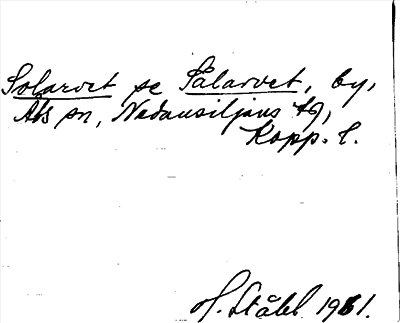 Solarvet se Sälarvet, by,
Als sn, Nedansiljans tg,
Kopp. l.
H. Ståhl 1961.